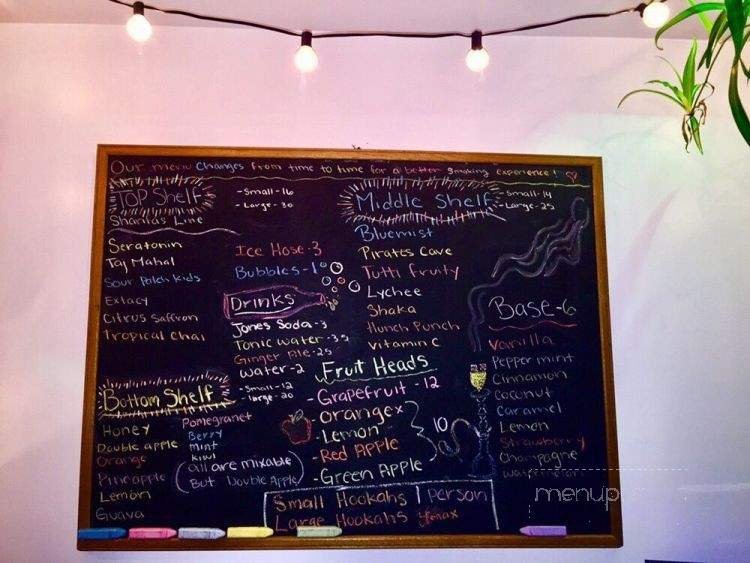 Our menu changes from time to time for a better smoking experience!
TOP Shelf
- Small - 16
- Large - 30
Sharitas Line
Seratonin
Taj Mahal
Sour Patch Kids
Extacy
Citrus Saffron
Tropical Chai
Ice Hose - 3
Bubbles - 1
Drinks
Jones Soda - 3
Tonic water - 3.5
Ginger Ale - 2.5
Water - 2
Middle Shelf
- Small - 14
- Large - 25
Bluemist
Pirates Cave
Tutti Fruity
Lychee
Shaka
Hunch Punch
Vitamin C
Base - 6
Vanilla
Pepper mint
Cinnamon
Coconut
Caramel
Lemon
Strawberry
Champagne
Bottom Shelf
- Small - 12
- Large - 20
Honey
Double apple
Orange
Pineapple
Lemon
Guava
Pomegranet
Berry
Mint
Kiwi
(all are mixable
But Double Apple)
Fruit Heads
- Grapefruit - 12
- Orange
- Lemon
- Red Apple
- Green Apple
10
Small Hookahs 1 person
Large Hookahs
menup